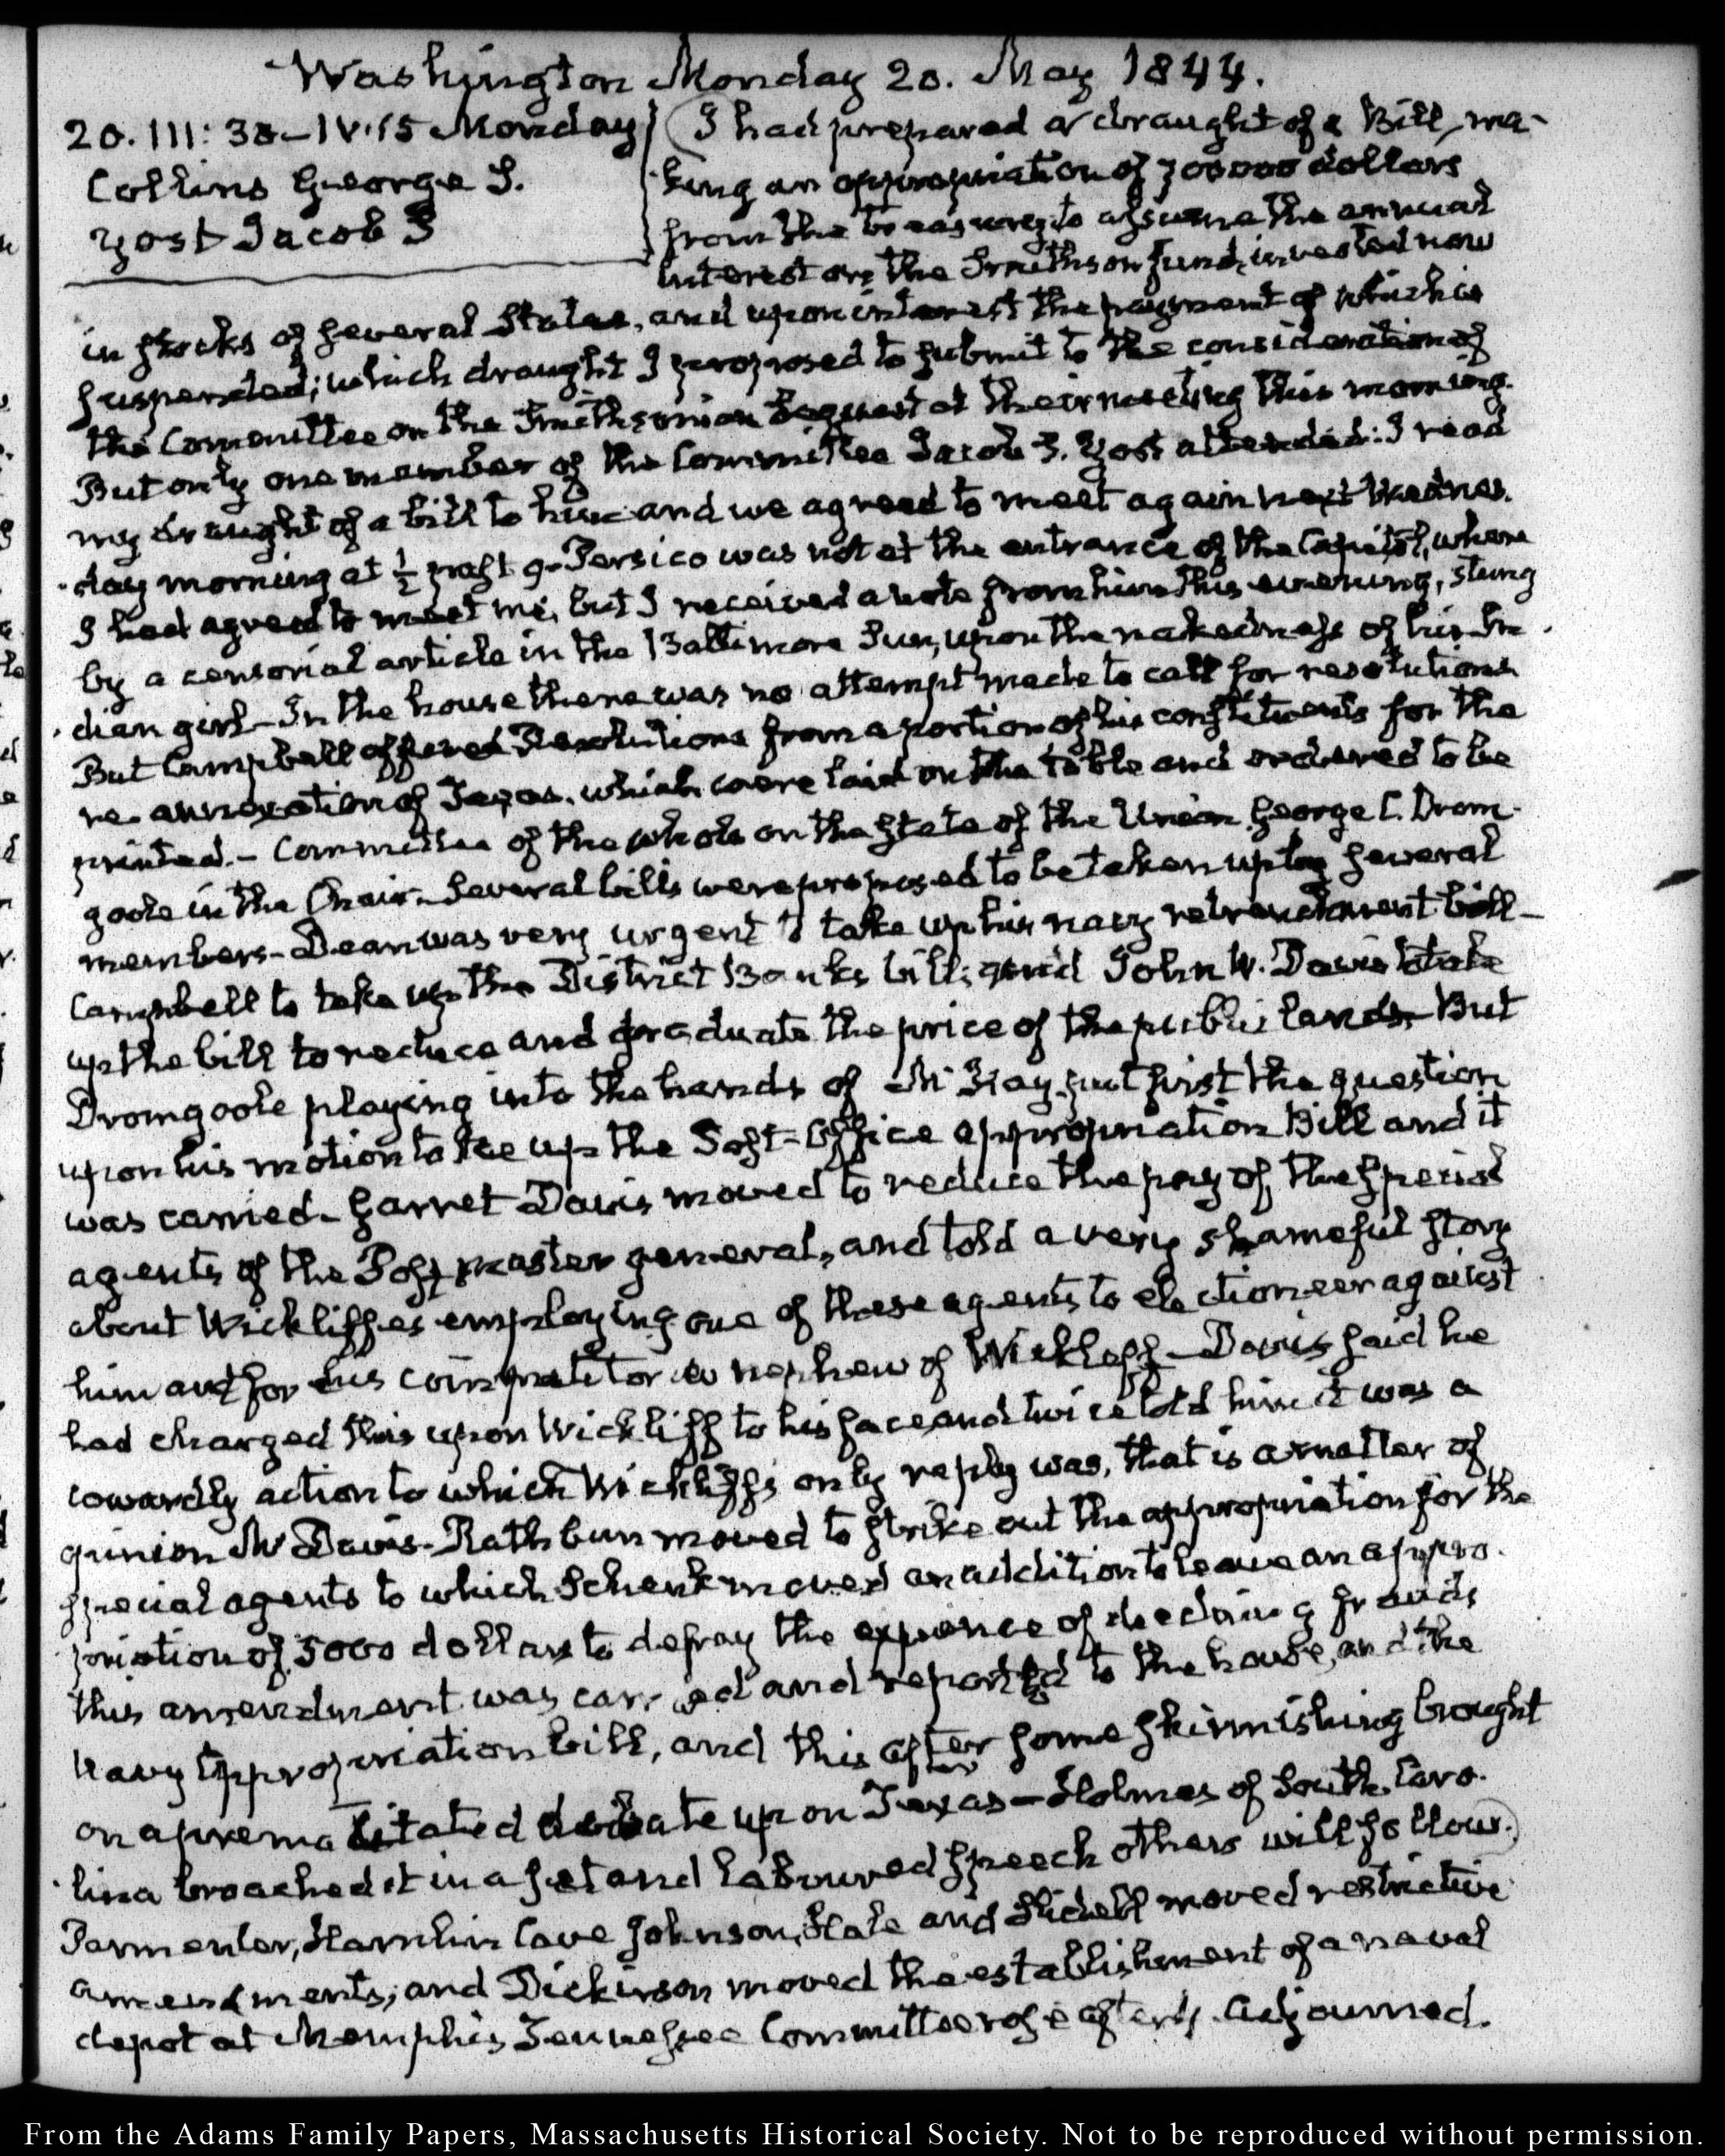 Washington Monday 20. May 1844.
20. III: 30 - IV. 15 Monday
Collins George S.
Yost Jacob S
I had prepared a draught of a Bill, ma-
king an appropriation of 700000 dollars
from the treasury, to assume the annual
interest on the Smithson fund, invested now
in stocks of several States, and upon interest the payment of which is
suspended; which draught I proposed to submit to the consideration of
the Committee on the Smithsonian bequest at their meeting this morning.
But only one member of the Committee Jacob S. Yost attended: I read
my draught of a bill to him and we agreed to meet again next Wednes-
day morning at ½ past 9 - Persico was not at the entrance of the Capitol, where
I had agreed to meet me, but I received a note from him this evening, stung
by a censorial article in the Baltimore Sun, upon the nakedness of his In-
dian girl - In the house there was no attempt made to call for resolutions
But Campbell offered Resolutions from a portion of his constituents for the
re-annexation of Texas, which were laid on the table and ordered to be
printed. - Committee of the whole on the State of the Union George C. Drom-
goole in the Chair - Several bills were proposed to be taken up by several
members - Dean was very urgent to take up his navy retrenchment bill -
Campbell to take up the District Banks bill; and John W. Davis to take
up the bill to reduce and graduate the price of the public lands - But
Dromgoole playing into the hands of McKay, put first the question
upon his motion to take up the Post-Office appropriation Bill and it
was carried - Garret Davis moved to reduce the pay of the special
agents of the Post master general, and told a very shameful story
about Wickliffes employing one of these agents to electioneer against
him and for his competitor a nephew of Wickliff - Davis said he
had charged this upon Wickliff to his face and twice told him it was a
cowardly action to which Wickliffs only reply was, that is a matter of
opinion Mr Davis - Rathbun moved to strike out the appropriation for the
special agents to which Schenk moved an addition to leave an appro-
priation of 5000 dollars to defray the expence of detecting frauds
this amendment was carried and reported to the house, and the
navy appropriation bill, and this after some skirmishing brought
on a premeditated debate upon Texas - Holmes of South Caro-
lina broached it in a set and laboured speech others will follow.
Parmenter, Hamlin Cave Johnson, Hale and Slidell moved restrictive
amendments; and Dickinson moved the establishment of a naval
depot at Memphis Tennessee Committee rose after 4. adjourned.
From the Adams Family Papers, Massachusetts Historical Society. Not to be reproduced without permission.